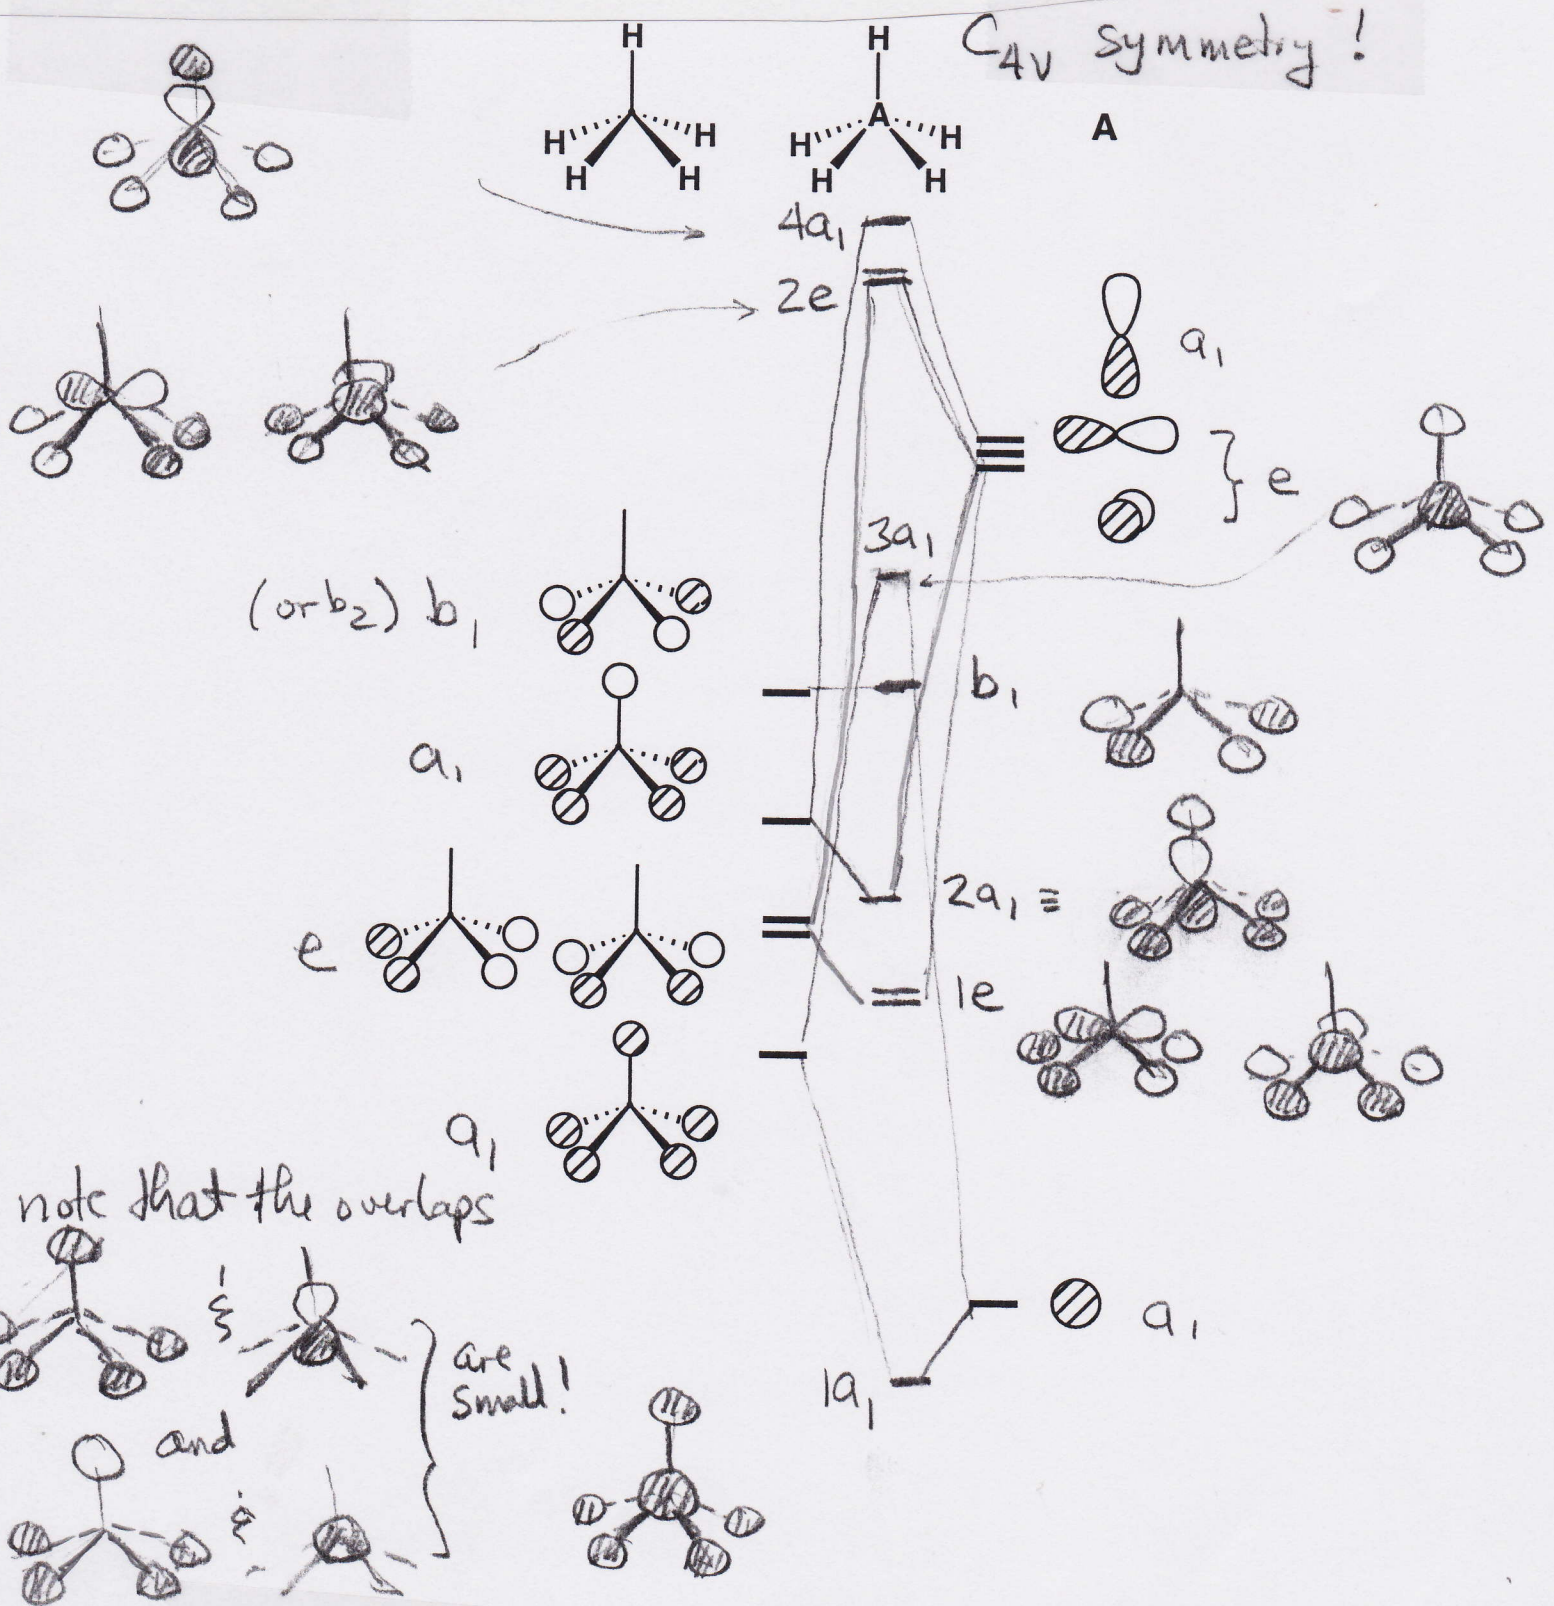 C4v symmetry !
H
H H H H
H
A
H H H H
A
4a1
2e
a1
e
3a1
(or b2) b1
b1
a1
2a1 ≡
e
1e
a1
note that the overlaps
&
are
small!
a1
1a1
and
&